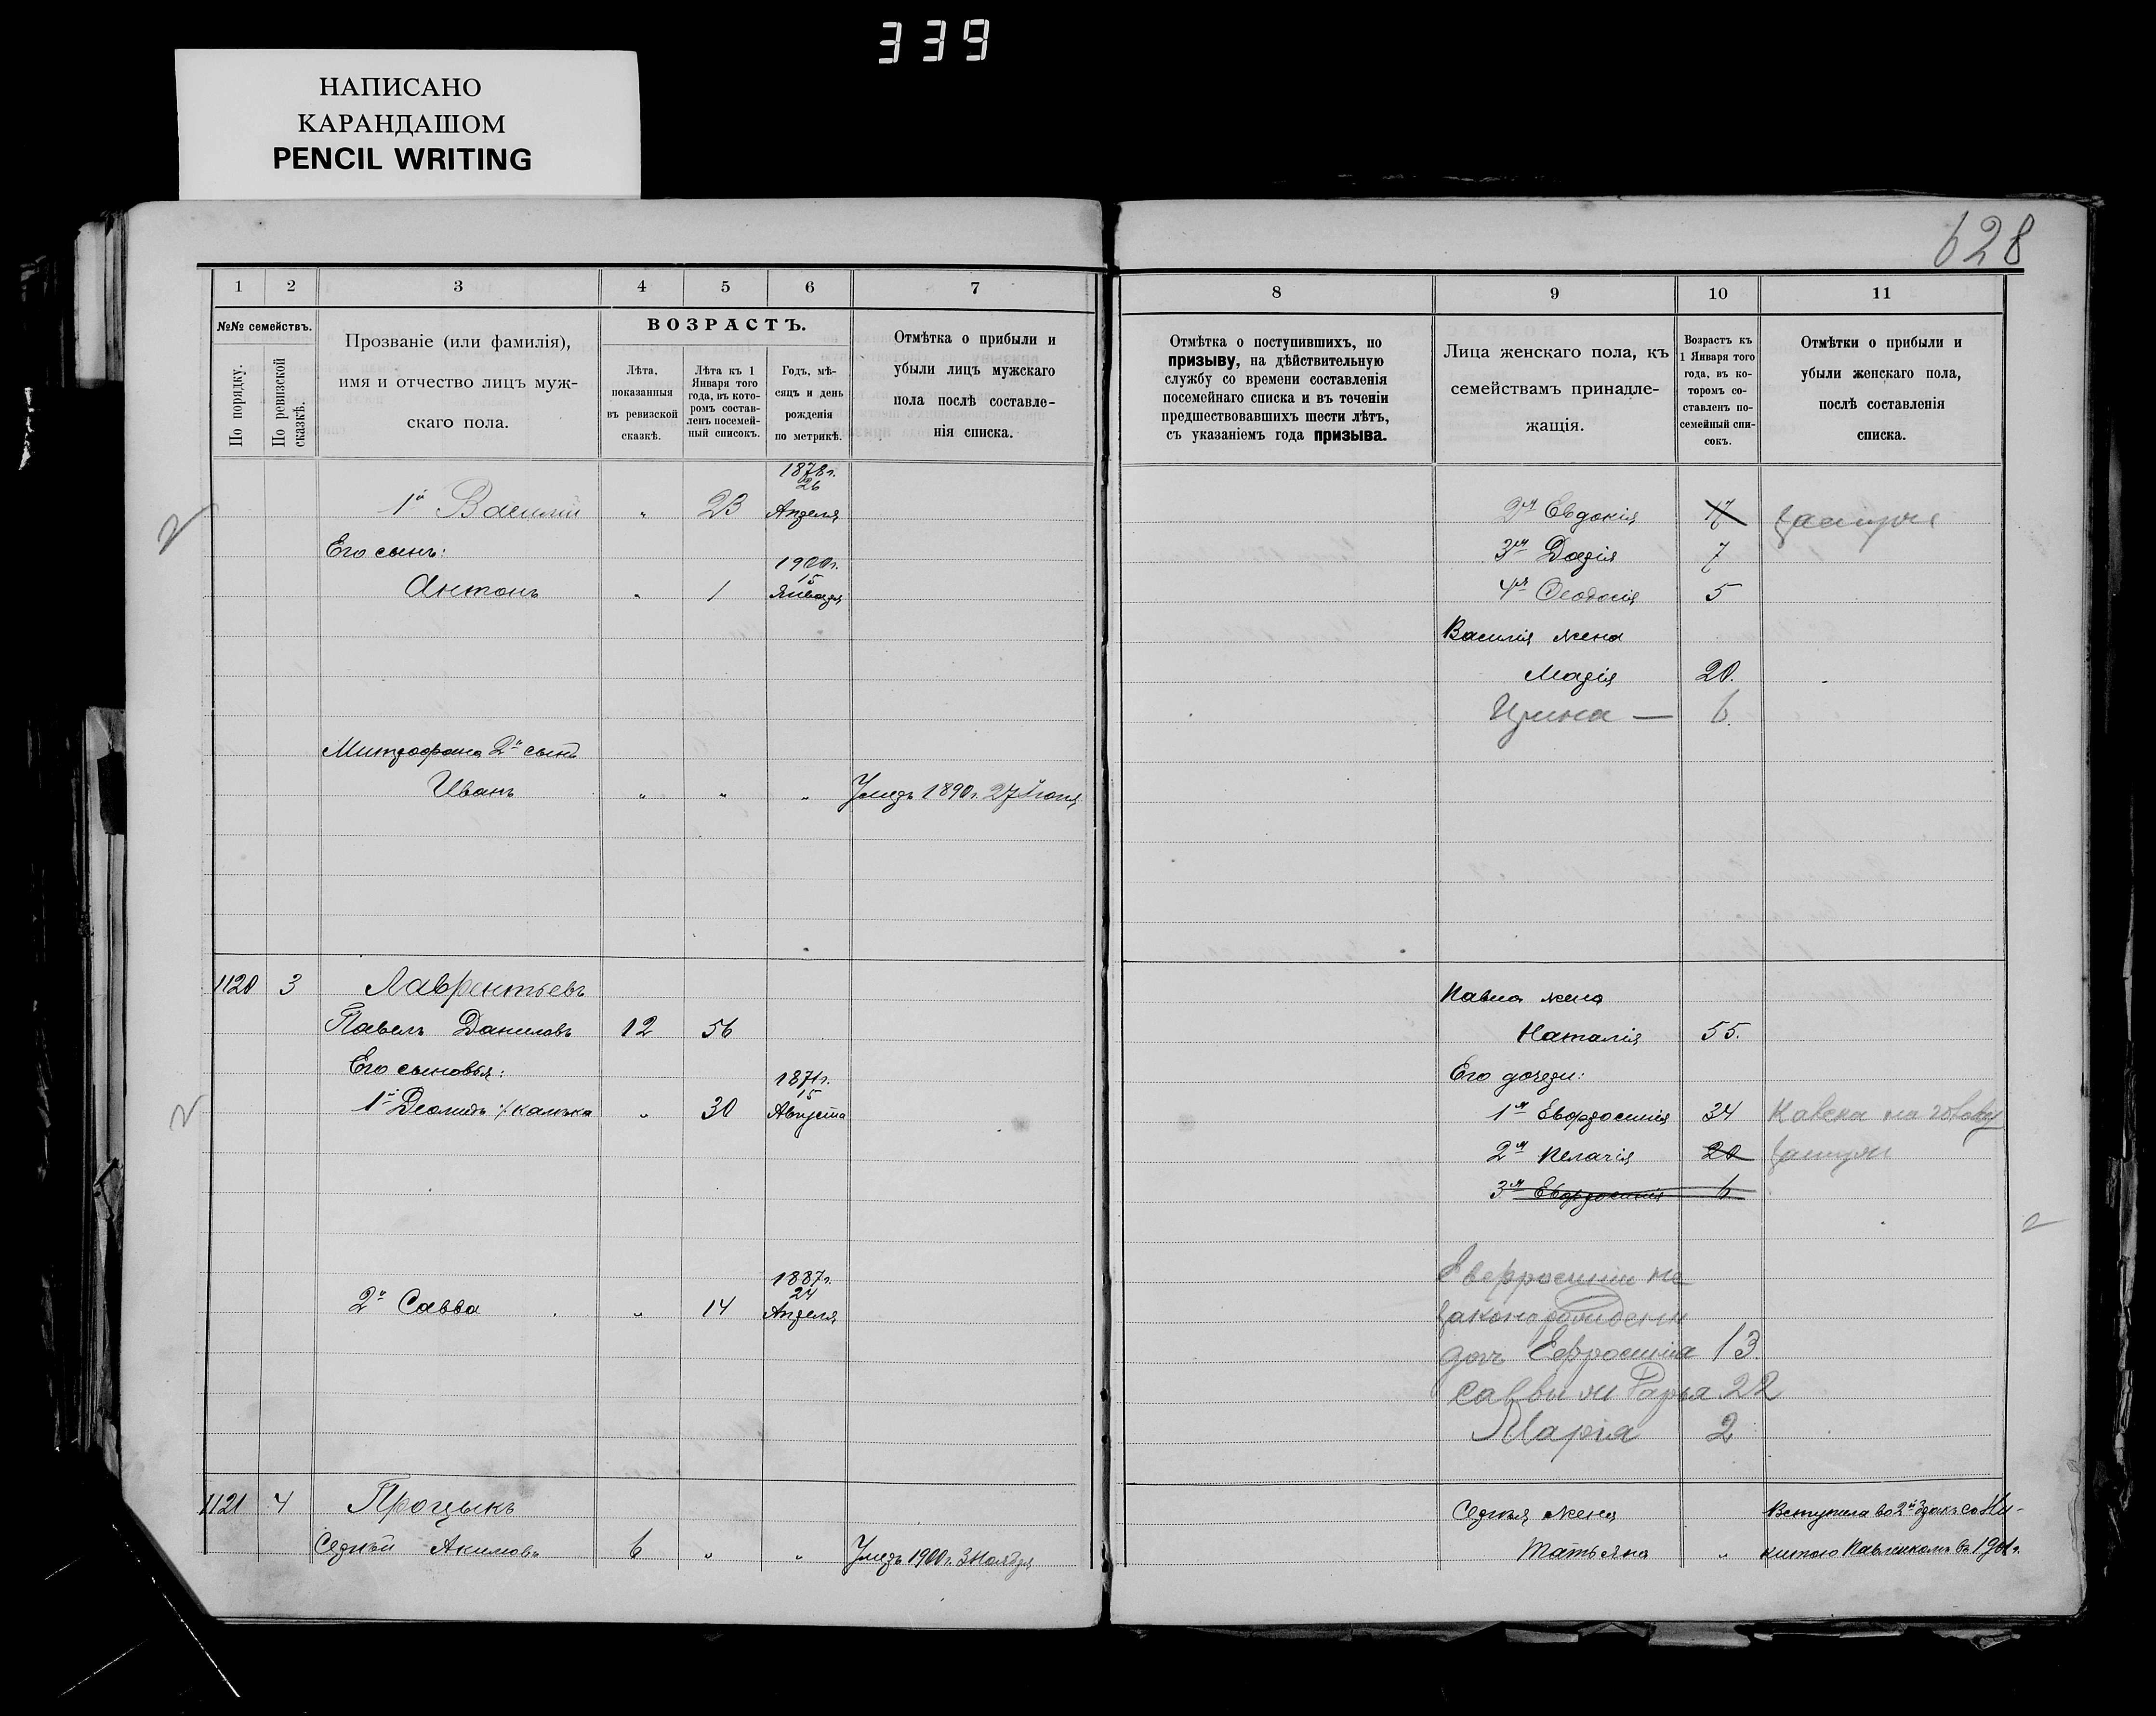 339
НАПИСАНО
КАРАНДАШОМ
PENCIL WRITING
628
1 2 3 4 5 6 7
№№ семействъ.
По порядку.
По ревизской сказкѣ.
Прозваніе (или фамилія),
имя и отчество лицъ муж-
скаго пола.
ВОЗРАСТЪ.
Лѣта,
показанныя
въ ревизской
сказкѣ.
Лѣта къ 1
Января того
года, въ кото-
ромъ состав-
ленъ посемей-
ный списокъ.
Годъ, мѣ-
сяцъ и день
рожденія
по метрикѣ.
Отмѣтка о прибыли и
убыли лицъ мужскаго
пола послѣ составле-
нія списка.
1878г.
26
1й Василій " 23 Апреля
Его сынъ:
1900г.
15
Антонъ " 1 Января
Митрофана 2й сынъ
Иванъ " " " Умеръ 1890г. 27 Іюня
1120 3 Лаврентьевъ
Павелъ Даниловъ 12 56
Его сыновья:
1871г.
15
1й Деомидъ " 30 Августа
1887г.
24
2й Савва " 14 Апреля
1121 4 Процыкъ
Сергѣй Акимовъ 6 " " Умеръ 1900г. 3 Ноября
8 9 10 11
Отмѣтка о поступившихъ, по
призыву, на дѣйствительную
службу со времени составленія
посемейнаго списка и въ теченіи
предшествовавшихъ шести лѣтъ,
съ указаніемъ года призыва.
Лица женскаго пола, къ
семействамъ принадле-
жащія.
Возрастъ къ
1 Января того
года, въ ко-
торомъ со-
ставленъ по-
семейный спи-
сокъ.
Отмѣтки о прибыли и
убыли женскаго пола,
послѣ составленія
списка.
2я Евдокія 17 замужем
3я Дарія 7
4я Феодосія 5
Василія жена
Марія 20.
Ирина — 6.
Павла жена
Наталія 55.
Его дочери:
1я Евфросинія 34
2я Пелагія 20 замужем
3я Евфросинія 6
Евфросиніи не
законорожденн
дочь Ефросинія 13
Саввы ж Дарья 22
Марія 2
Сергѣя жена Вступила во 2й бракъ со Ни-
Татьяна " китою Павликомъ въ 1901г.